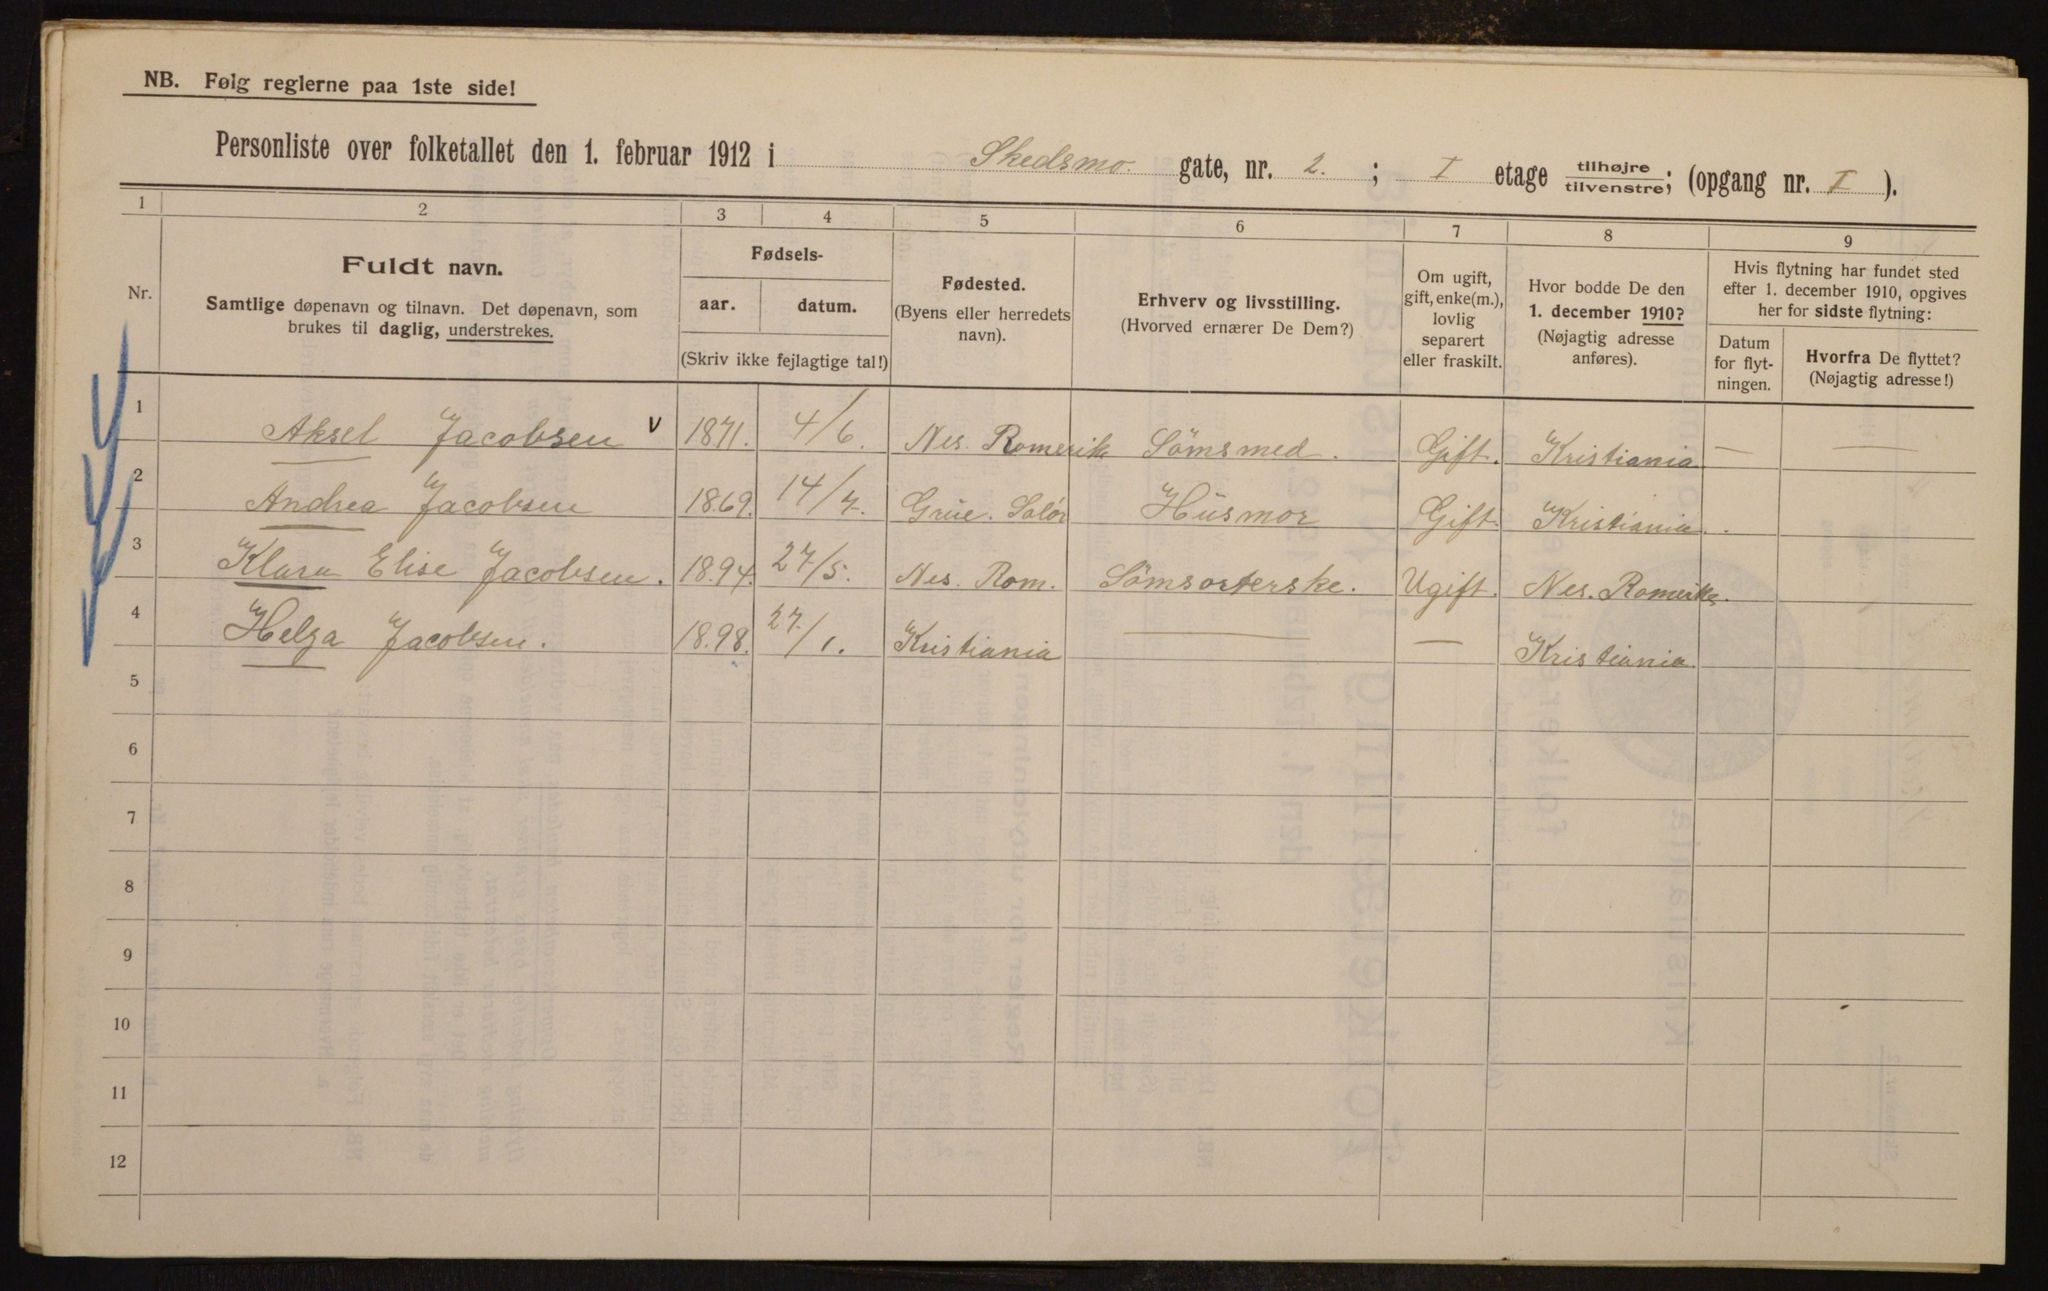 NB. Følg reglerne paa 1ste side!
Personliste over folketallet den 1. februar 1912 i Skedsmo. gate, nr. 2. ; I etage tilhøjre tilvenstre; (opgang nr. I ).
1 2 3 4 5 6 7 8 9
Nr.
Fuldt navn.
Samtlige døpenavn og tilnavn. Det døpenavn, som
brukes til daglig, understrekes.
Fødsels-
aar. datum.
(Skriv ikke fejlagtige tal!)
Fødested.
(Byens eller herredets
navn).
Erhverv og livsstilling.
(Hvorved ernærer De Dem?)
Om ugift,
gift, enke(m.),
lovlig
separert
eller fraskilt.
Hvor bodde De den
1. december 1910?
(Nøjagtig adresse
anføres).
Hvis flytning har fundet sted
efter 1. december 1910, opgives
her for sidste flytning:
Datum
for flyt-
ningen.
Hvorfra De flyttet?
(Nøjagtig adresse!)
1 Aksel Jacobsen v 1871. 4/6. Nes. Romerike Sömsmed. Gift. Kristiania — —
2 Andrea Jacobsen 1869. 14/7. Grue. Solör Husmor Gift. Kristiania.
3 Klara Elise Jacobsen. 1894. 27/5. Nes. Rom. Sömsorterske. Ugift. Nes. Romerike.
4 Helga Jacobsen. 1898. 27/1. Kristiania — — Kristiania.
5
6
7
8
9
10
11
12